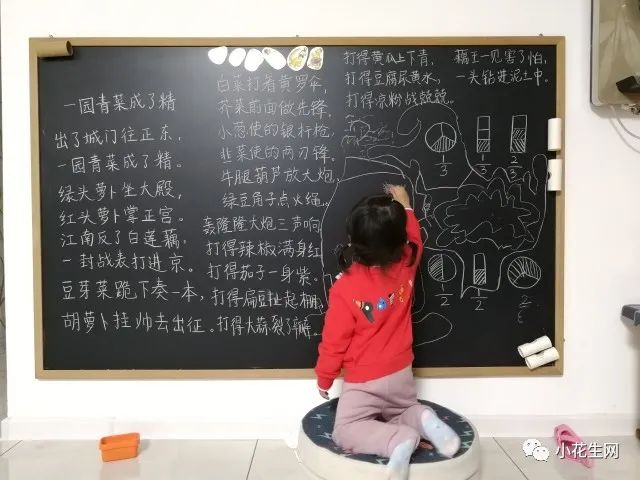 一园青菜成了精
出了城门往正东，
一园青菜成了精。
绿头萝卜坐大殿，
红头萝卜掌正宫。
江南反了白莲藕，
一封战表打进京。
豆芽菜跪下奏一本，
胡萝卜挂帅去出征。
白菜打着黄罗伞，
芥菜前面做先锋，
小葱使的银杆枪，
韭菜使的两刃锋。
牛腿葫芦放大炮，
绿豆角子点火绳。
轰隆隆大炮三声响，
打得辣椒满身红，
打得茄子一身紫。
打得扁豆扯起棚，
打得大蒜裂了瓣，
打得黄瓜上下青，
打得豆腐尿黄水，
打得凉粉战兢兢。
藕王一见害了怕，
一头钻进泥土中。
1/3 1/3 2/3
1/2 1/2
小花生网